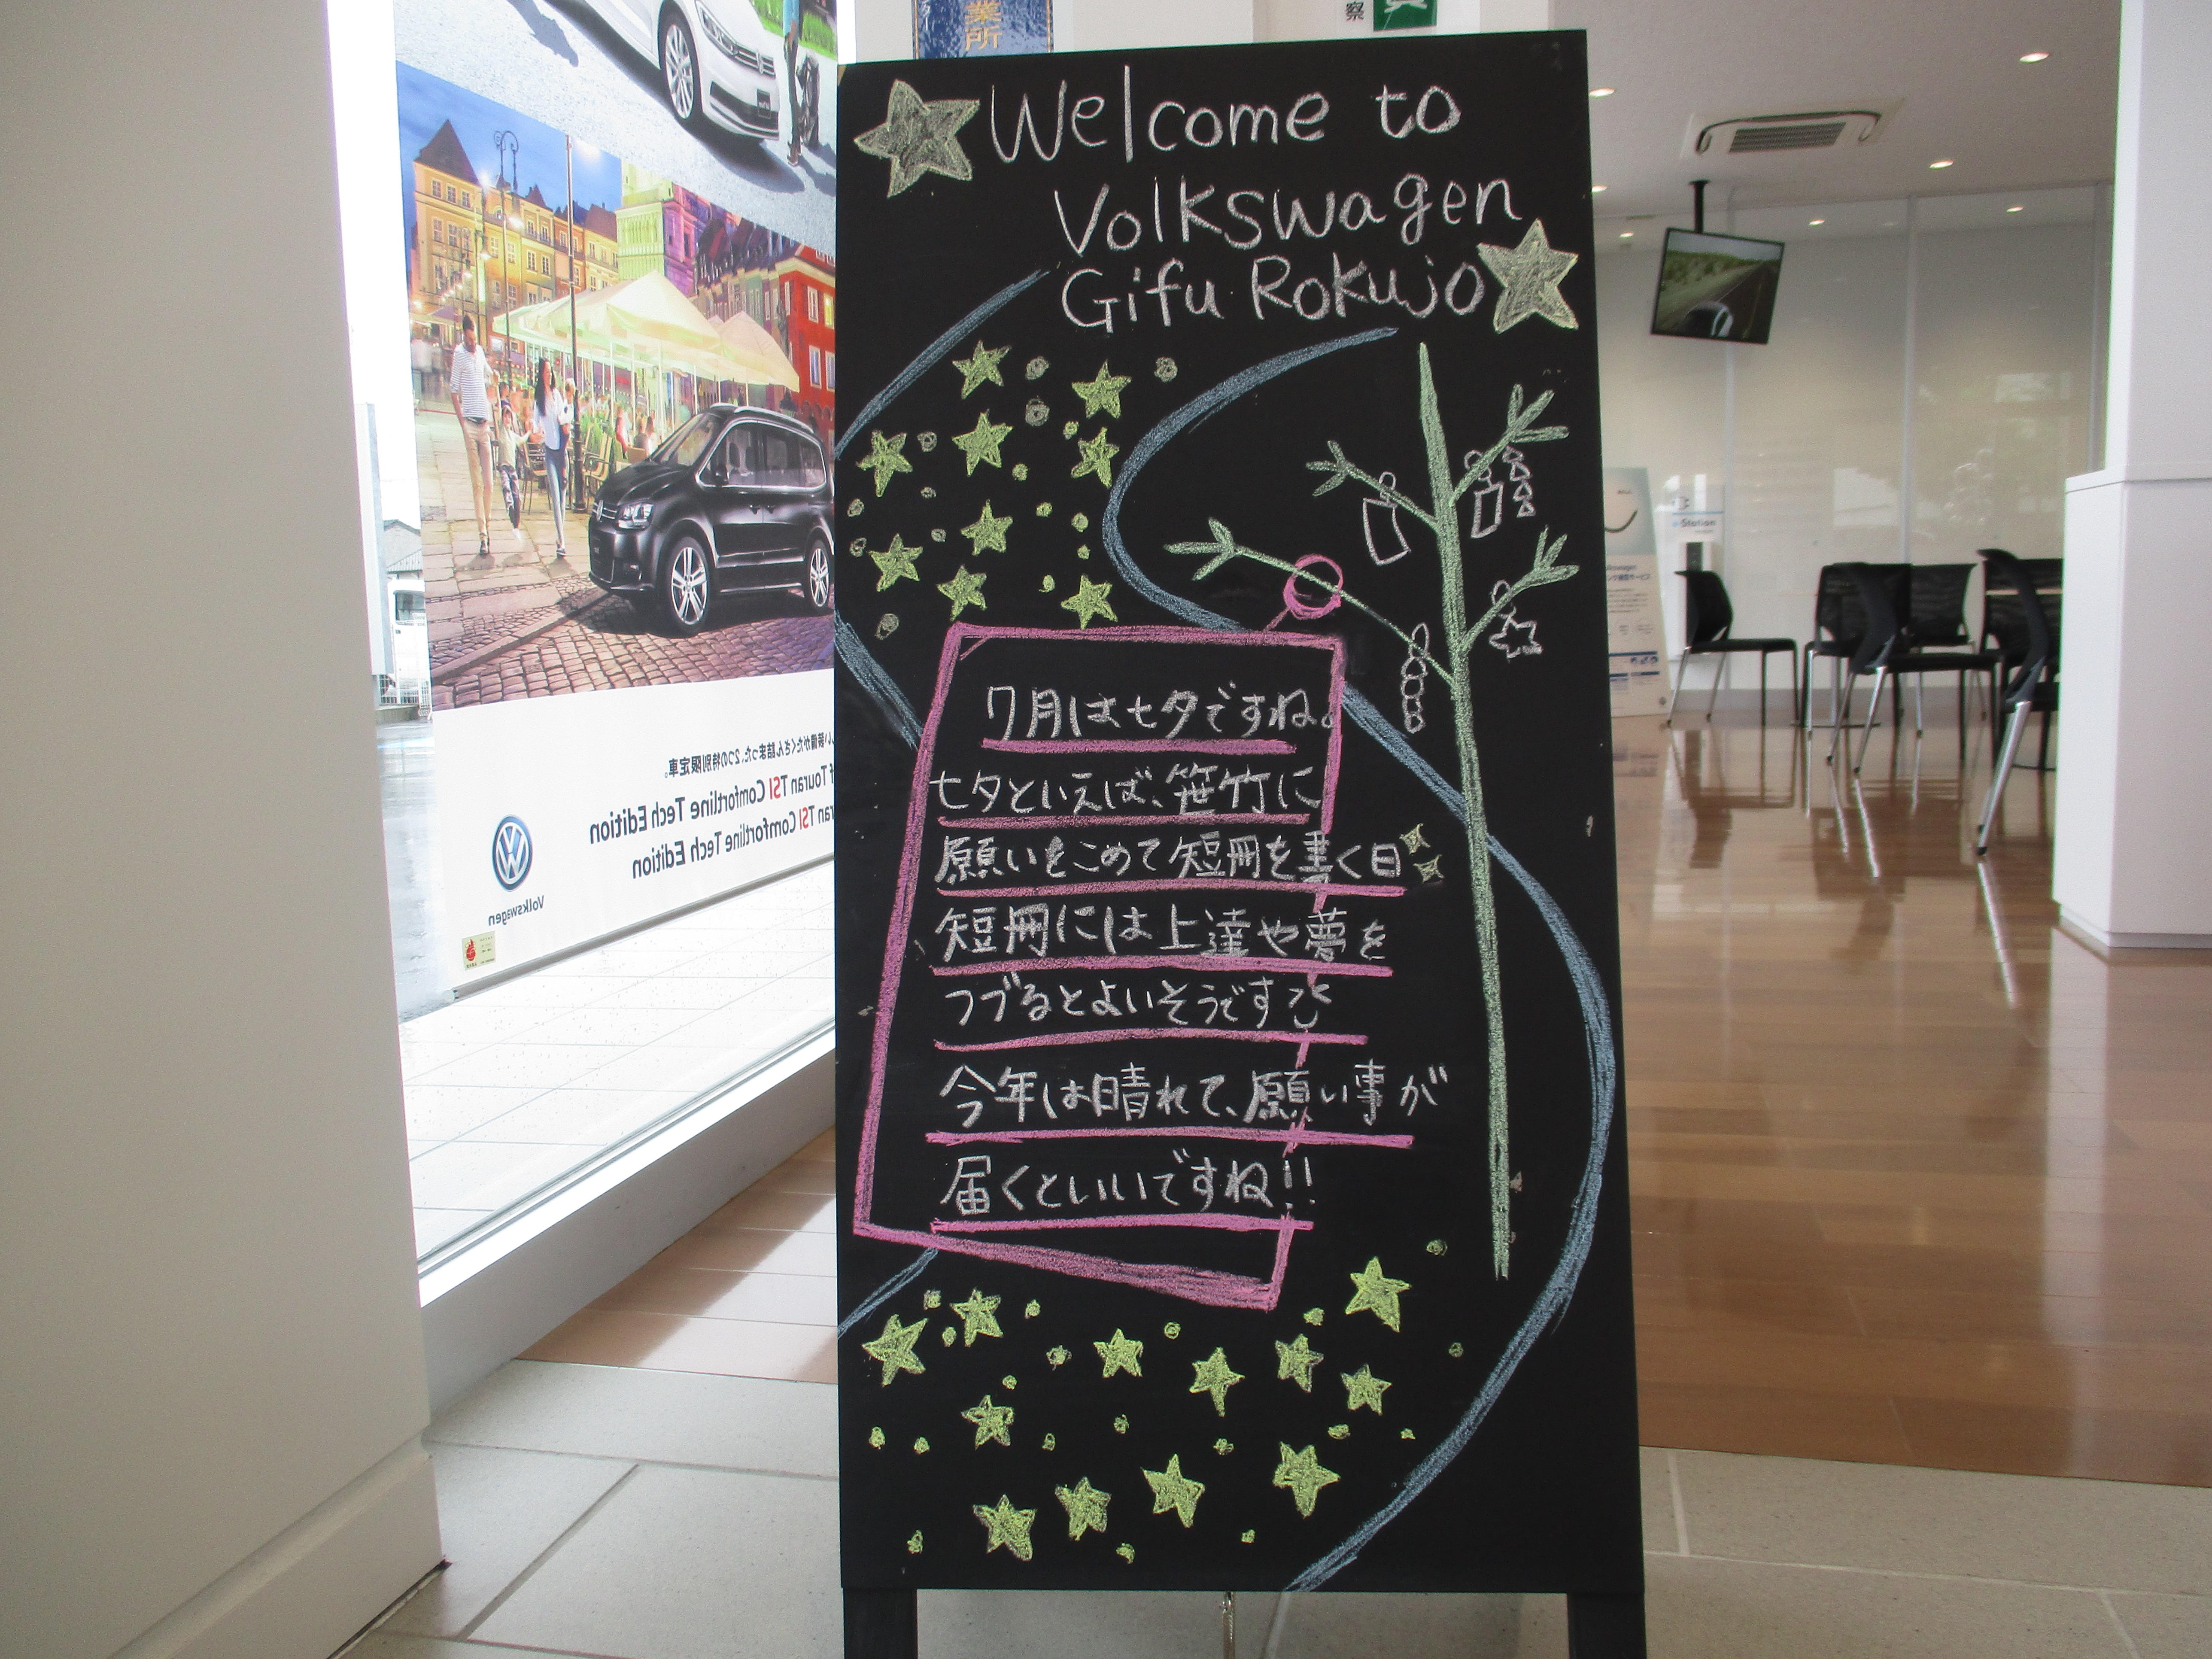 業
所
察
Welcome to
Volkswagen
Gifu Rokujo
7月は七夕ですね。
七夕といえば、笹竹に
願いをこめて短冊を書く日
短冊には上達や夢を
つづるとよいそうです
今年は晴れて、願い事が
届くといいですね!!
い装備がたくさん詰まった、2つの特別限定車。
f Touran TSI Comfortline Tech Edition
ran TSI Comfortline Tech Edition
Volkswagen
e-Station